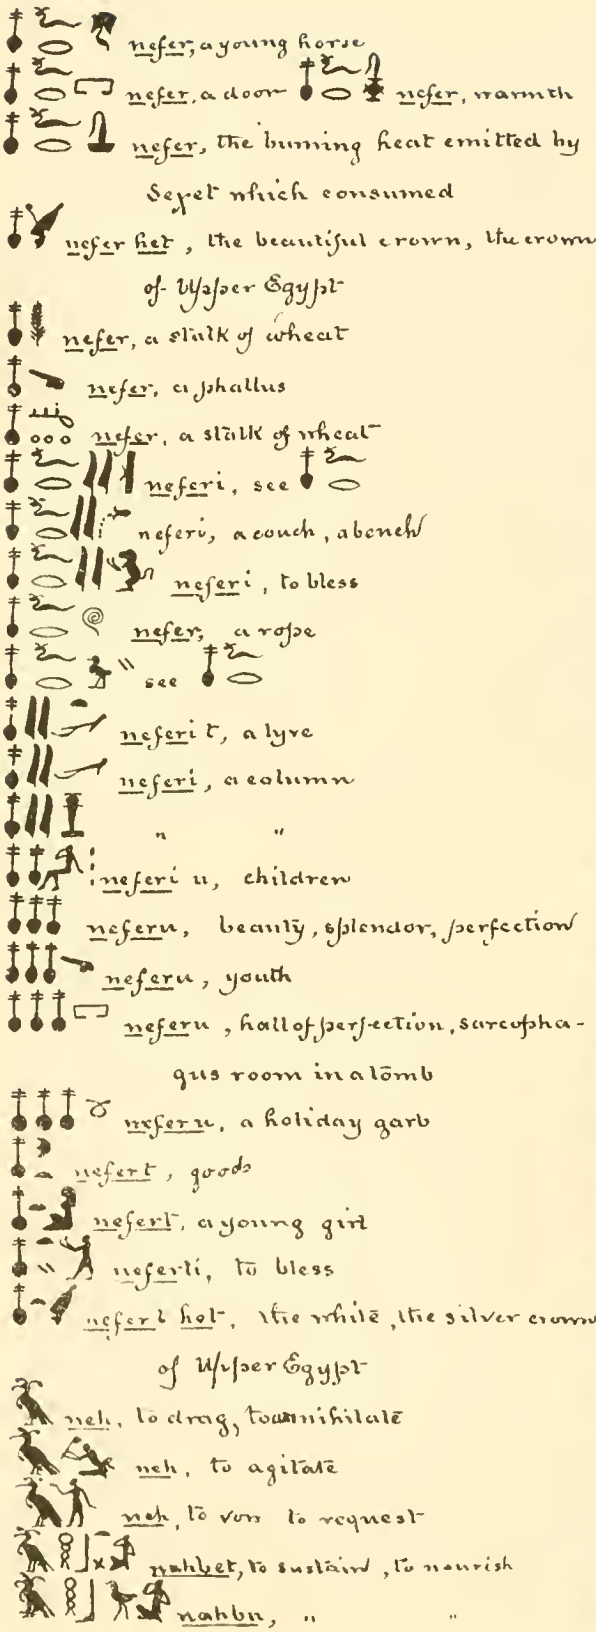 nefer, a young horse
nefer, a door nefer, warmth
nefer, the burning heat emitted by
Sexet which consumed
nefer het, the beautiful crown, the crown
of Upper Egypt
nefer, a stalk of wheat
nefer, a phallus
nefer, a stalk of wheat
neferi, see
neferi, a couch, a bench
neferi, to bless
nefer, a rope
see
neferi t, a lyre
neferi, a column
" "
neferi u, children
neferu, beauty, splendor, perfection
neferu, youth
neferu, hall of perfection, sarcopha-
gus room in a tomb
neferu, a holiday garb
nefert, goods
nefert, a young girl
neferti, to bless
nefert hot, the white, the silver crown
of Upper Egypt
neh, to drag, to annihilate
neh, to agitate
neh, to vow to request
nahbet, to sustain, to nourish
nahbu, " "